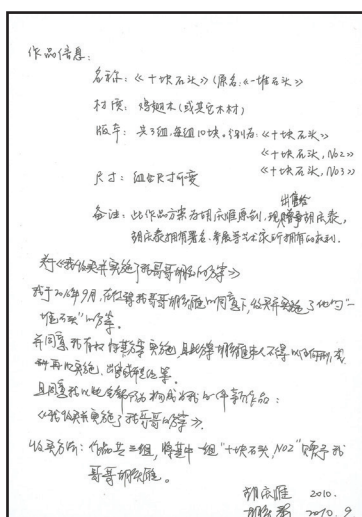 作品信息：
名称：《十块石头》（原名：《一堆石头》
材质：樟木（或其它木材）
版本：共3组，每组10块，分别为：《十块石头》
《十块石头，No2》
《十块石头，No3》
尺寸：组合尺寸可变
出售给
备注：此作品方案为胡庆雁原创，现赠胡庆泰，
胡庆泰拥有署名、参展等艺术家所拥有的权利。
关于《我收买并实施了我哥哥胡庆雁的方案》
我于2010年9月，在征得我哥哥胡庆雁的同意下，收买并实施了他的“一
堆石头”的方案。
并同意我有权将其方案实施，且此方案胡庆雁本人不得以任何形式、
材料再次实施、出售或赠给等。
且同意我以此全部行为构成为我的一件新作品：
《我收买并实施了我哥哥的方案》。
收买方法：作品共三组，将其中一组“十块石头，NO2”赠予我
哥哥胡庆雁。
胡庆雁 2010.
胡庆泰 2010.9